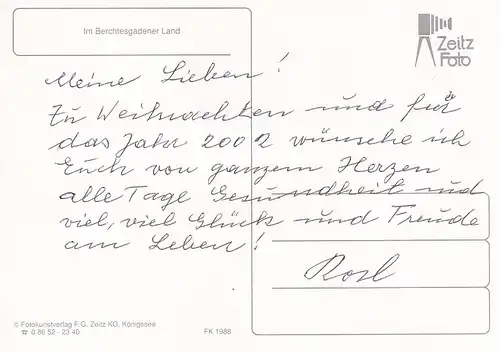 Im Berchtesgadener Land
Zeitz
Foto
Meine Lieben!
Zu Weihnachten und für
das Jahr 2002 wünsche ich
Euch von ganzem Herzen
alle Tage Gesundheit und
viel, viel Glück und Freude
am Leben!
Rosl
© Fotokunstverlag F.G. Zeitz KG, Königssee
☎ 0 86 52 - 23 40
FK 1988